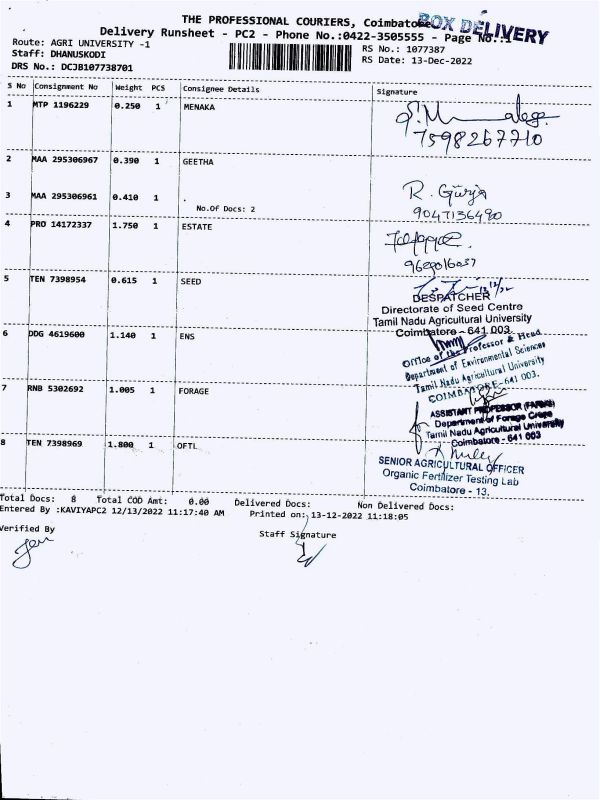 THE PROFESSIONAL COURIERS, Coimbatore
BOX DELIVERY
Delivery Runsheet - PC2 - Phone No.:0422-3505555 - Page No.:1
Route: AGRI UNIVERSITY -1
RS No.: 1077387
Staff: DHANUSKODI
RS Date: 13-Dec-2022
DRS No.: DCJB107738701
S No Consignment No Weight PCS Consignee Details Signature
1 MTP 1196229 0.250 1 MENAKA
7598267710
2 MAA 295306967 0.390 1 GEETHA
3 MAA 295306961 0.410 1 .
R. Girija
No.Of Docs: 2
9047136490
4 PRO 14172337 1.750 1 ESTATE
5 TEN 7398954 0.615 1 SEED
DESPATCHER
Directorate of Seed Centre
Tamil Nadu Agricultural University
Coimbatore - 641 003.
6 DDG 4619600 1.140 1 ENS
Office of the Professor & Head
Department of Environmental Sciences
Tamil Nadu Agricultural University
COIMBATORE-641 003.
7 RNB 5302692 1.005 1 FORAGE
ASSISTANT PROFESSOR (FARMS)
Department of Forage Crops
Tamil Nadu Agricultural University
Coimbatore - 641 003
8 TEN 7398969 1.800 1 OFTL
SENIOR AGRICULTURAL OFFICER
Organic Fertilizer Testing Lab
Coimbatore - 13.
Total Docs: 8 Total COD Amt: 0.00 Delivered Docs: Non Delivered Docs:
Entered By :KAVIYAPC2 12/13/2022 11:17:40 AM Printed on: 13-12-2022 11:18:05
Verified By
Staff Signature